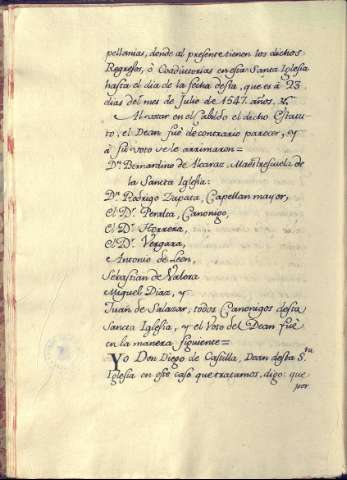 pellanias, donde al presente tienen los dichos
Regresos, ò Coadjutorias en esta Santa Iglesia
hasta el dia de la fecha desta, que es à 23
dias del mes de Julio de 1547. años. &.
Al votar en el Cabildo el dicho Estatu-
to, el Dean fuè de contrario parecer, y
à su voto se le arrimaron=
Dn. Bernardino de Alcaraz, Maestrescuela de
la Sancta Iglesia:
Dn. Rodrigo Zapata, Capellan mayor,
el Dr. Peralta, Canonigo,
el Dr. Herrera,
el Dr. Vergara,
Antonio de Leon,
Sebastian de Valora
Miguel Diaz, y
Juan de Salazar, todos Canonigos desta
Sancta Iglesia, y el Voto del Dean fuè
en la manera siguiente=
Yo Don Diego de Castilla, Dean desta S.ta
Iglesia en este caso que tratamos, digo: que
por